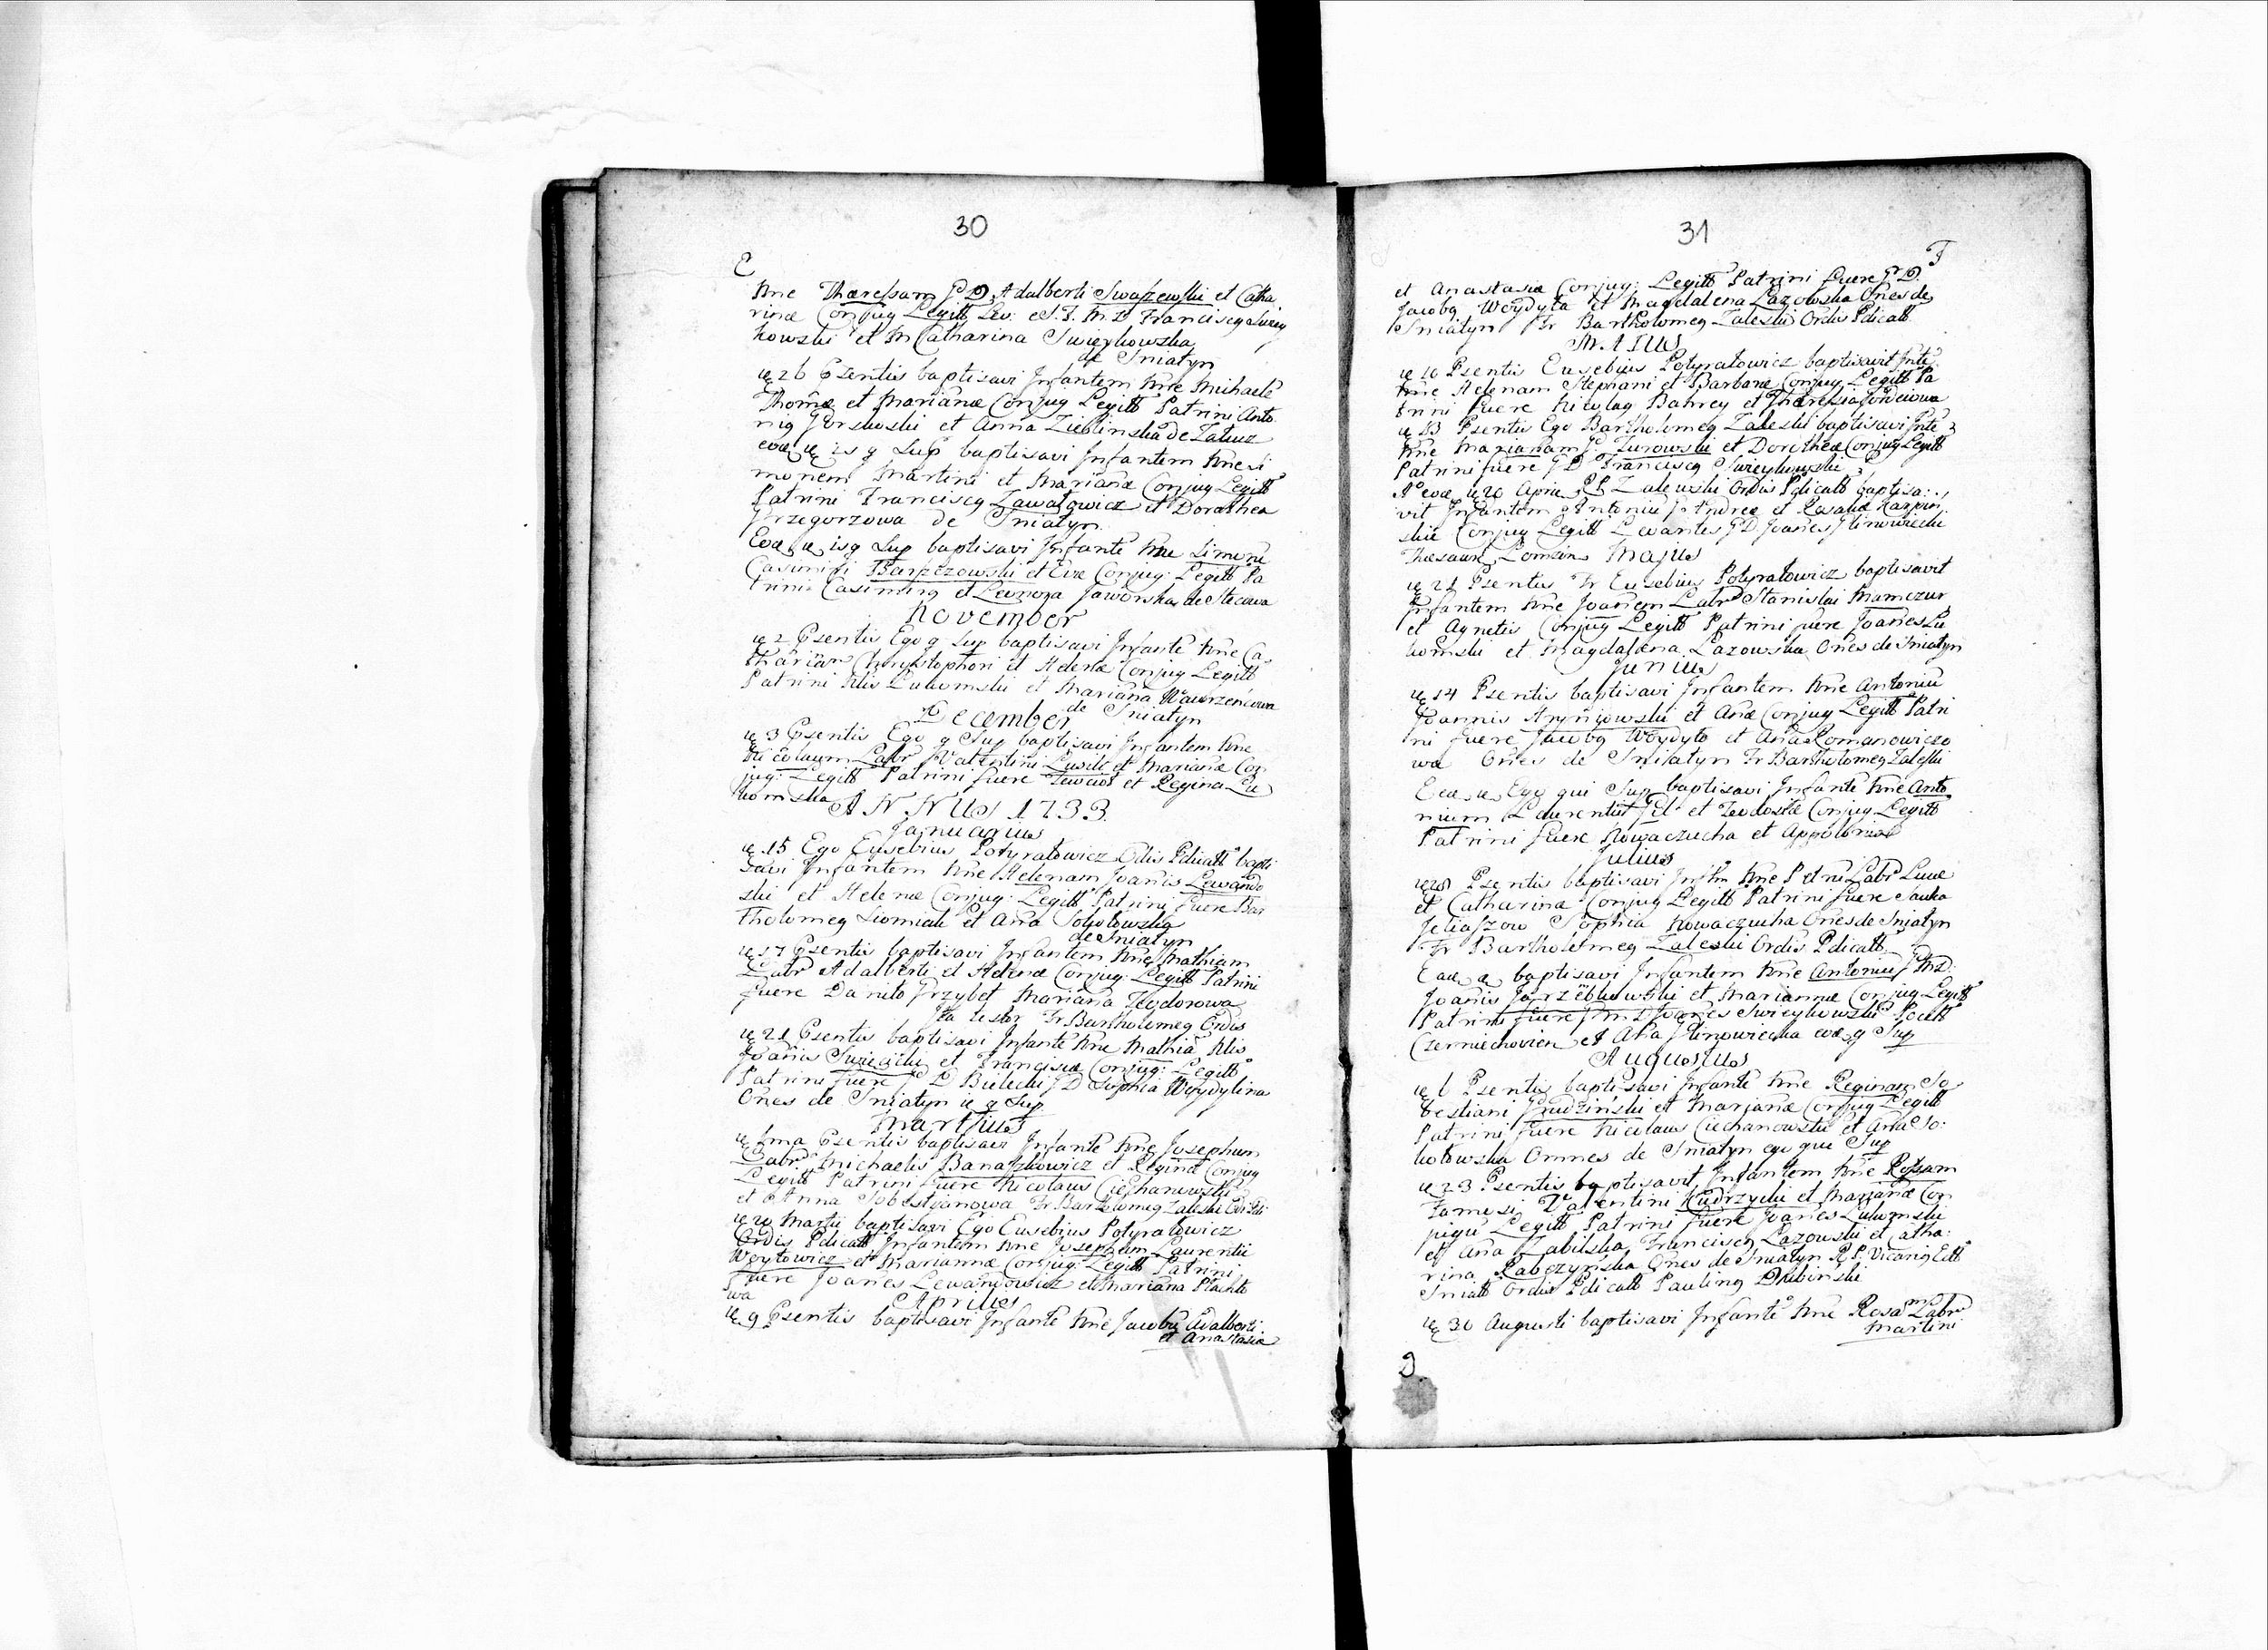 30
E
Nne Theressam G D Adalberti Swaszewski et Catha
rinæ Conjug Legitt Lev: et S. F. M D Franciscg Swiey
kowski et M Catharina Swieykowska
de Sniatyn
26 Psentis baptisavi Infantem Nne Michaele
Thomæ et Marianæ Conjug Legitt Patrini Anto
nig Gorskoski et Anna Zielinska de Załucz
eod is q Sup baptisavi Infantem Nne Si
monem Martini et Mariana Conjug Legitt
Patrini Franciscg Zawałowicz et Dorothea
Grzegorzowa de Sniatyn
Eod is q Sup baptisavi Infante Nne Simone
Casimiri Barszczowski et Evæ Conjug: Legitt Pa
trini Casimirg et Leonora Jaworska de Stecowa
November
2 Psentis Ego q Sup baptisavi Infante Nne Ca
tharian Chrystophori et Helenæ Conjug Legitt
Patrini Nlis Lukomski et Mariana Wawrzencowa
de Sniatyn
December
3 Psentis Ego q Sup baptisavi Infantem Nne
Nicolaum Labr Valentini Lusik et Marianæ Con
jug: Legitt Patrini fuere Iewcios et Regina Lu
komska
ANNUS 1733.
Januarius
15 Ego Eusebius Potyratowicz Odis Pdicatt bapti
savi Infantem Nne Helenam Joanis Lewando
ski et Helenæ Conjug: Legitt Patrini fuere Bar
tholomeg Siomiak et Ana Sokołowska
de Sniatyn
17 Psentis baptisavi Infantem Nne Mathiam
Labr Adalberti et Helenæ Conjug Legitt Patrini
fuere Daniło Grzybet Mariana Teodorowa
Ita testor Fr Bartholomeg Ordis
21 Psentis baptisavi Infante Nne Mathia Nlis
Joanis Swiecicki et Francisca Conjug: Legitt
Patrini fuere G D Bielecki G D Sophia Woydylina
Ones de Sniatyn is q Sup
Martius
1ma Psentis baptisavi Infante Nne Josephum
Labr Michaelis Banaszkowicz et Reginæ Conjug
Legitt Patrini fuere Nicolaus Ciechanowski
et Anna Sobestyanowa Fr Bartolomeg Zaleski Or Pdi
20 Martii baptisavi Ego Eusebius Potyratowicz
Ordis Pdicatt Infantem Nne Josephum Laurentii
Woytowicz et Mariannæ Conjug: Legitt Patrini
fuere Joanes Lewandowicz et Mariana Płachto
wa
Aprilis
9 Psentis baptisavi Infante Nne Jacobu Adalberti
et Anastasiæ
31
F
et Anastasiæ Conjug: Legitt Patrini fuere Gr D.
Jacobg Woydyła et Magdalena Lazowska Ones de
Sniatyn Fr Bartholomeg Zaleski Ordis Pdicatt
MAIUS
10 Psentis Eusebius Potyratowicz baptisavit Infte
Nne Helenam Stephani et Barbaræ Conjug Legitt Pa
trini fuere Nicolag Bahrey et Theresia
13 Psentis Ego Bartholomeg Zaleski baptisavi Infte
Nne Marianam G Zurowski et Dorotheæ Conjug Legitt
Patrini fuere G D Franciscg Swieykowski
A eod 20 Aprie P Zaleuski Ordis Pdicatt baptisa:
vit Infantem Antoniu G Andreæ et Rosaliæ Karpin
skie Conjug Legitt Levantes G D Joanes Glinowiecki
Thesaur Lomzins Majus
21 Psentis Fr Eusebius Potyratowicz baptisavit
Infantem Nne Joanem Labr Stanislai Mamczur
et Agnetis Conjug Legitt Patrini fuere Joanes Lu
komski et Magdalena Lazowska Ones de Sniatyn
Junius
14 Psentis baptisavi Infantem Nne Antoniu
Joannis Hryniowski et Anæ Conjug Legitt Patri
ni fuere Jacobg Woydyło et Ana Romanowiczo
wa Ones de Sniatyn Fr Bartholomeg Zaleski
Ead Ego qui Sup baptisavi Infante Nne Anto
nium Laurentii Gil et Teodosiæ Conjug Legitt
Patrini fuere Nowaczucha et Appolonia
Julius
Psentis baptisavi Infm Nne Petru Labr Lucæ
et Catharinæ Conjug Legitt Patrini fuere Sauka
Jeliaszow Sophia Nowaczucha Ones de Sniatyn
Fr Bartholomeg Zaleski Ordis Pdicatt
Ead baptisavi Infantem Nne Antoniu G M D:
Joanis Jarzębkowski et Mariannæ Conjug Legitt
Patrini fuere G M D Joanes Swieykowski Pocill
Czerniechovien et Ana Glinowiecka eod q Sup
Augustus
6 Psentis baptisavi Infante Nne Reginam Se
bestiani Grudzinski et Marjanæ Conjug Legitt
Patrini fuere Nicolaus Ciechanowski et Ana So:
kołowska Omnes de Sniatyn ego qui Sup
23 Psentis baptisavit Infantem Nne Rosam
Famosi Valentini Kudrzycki et Marjanæ Con
jugu Legitt Patrini fuere Joanes Lukomski
et Ana Zabilska Franciscg Lazowski et Catha:
rina Rabczynska Ones de Sniatyn R P. Vicarig Ecll
Sniatt Ordis Pdicatt Pauling Dubinski
30 Augusti baptisavi Infante Nne Rosam Labr
Martini